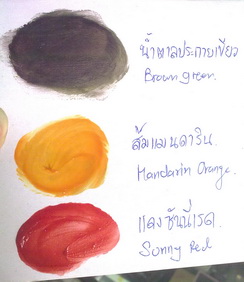 น้ำตาลประกายเขียว
Brown green.
ส้มแมนดาริน.
Mandarin Orange.
แดงซันนี่เรด.
Sonny Red